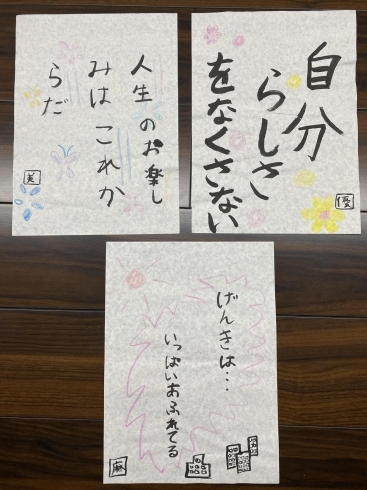 人生のお楽し
みはこれか
らだ
美
自分
らしさ
をなくさない
優
げんきは…
いっぱいあふれてる
麻